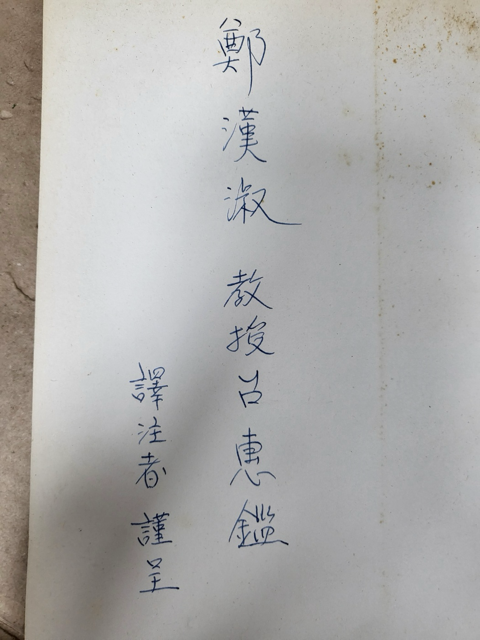 鄭漢淑 教授 惠鑑
譯注者 謹呈